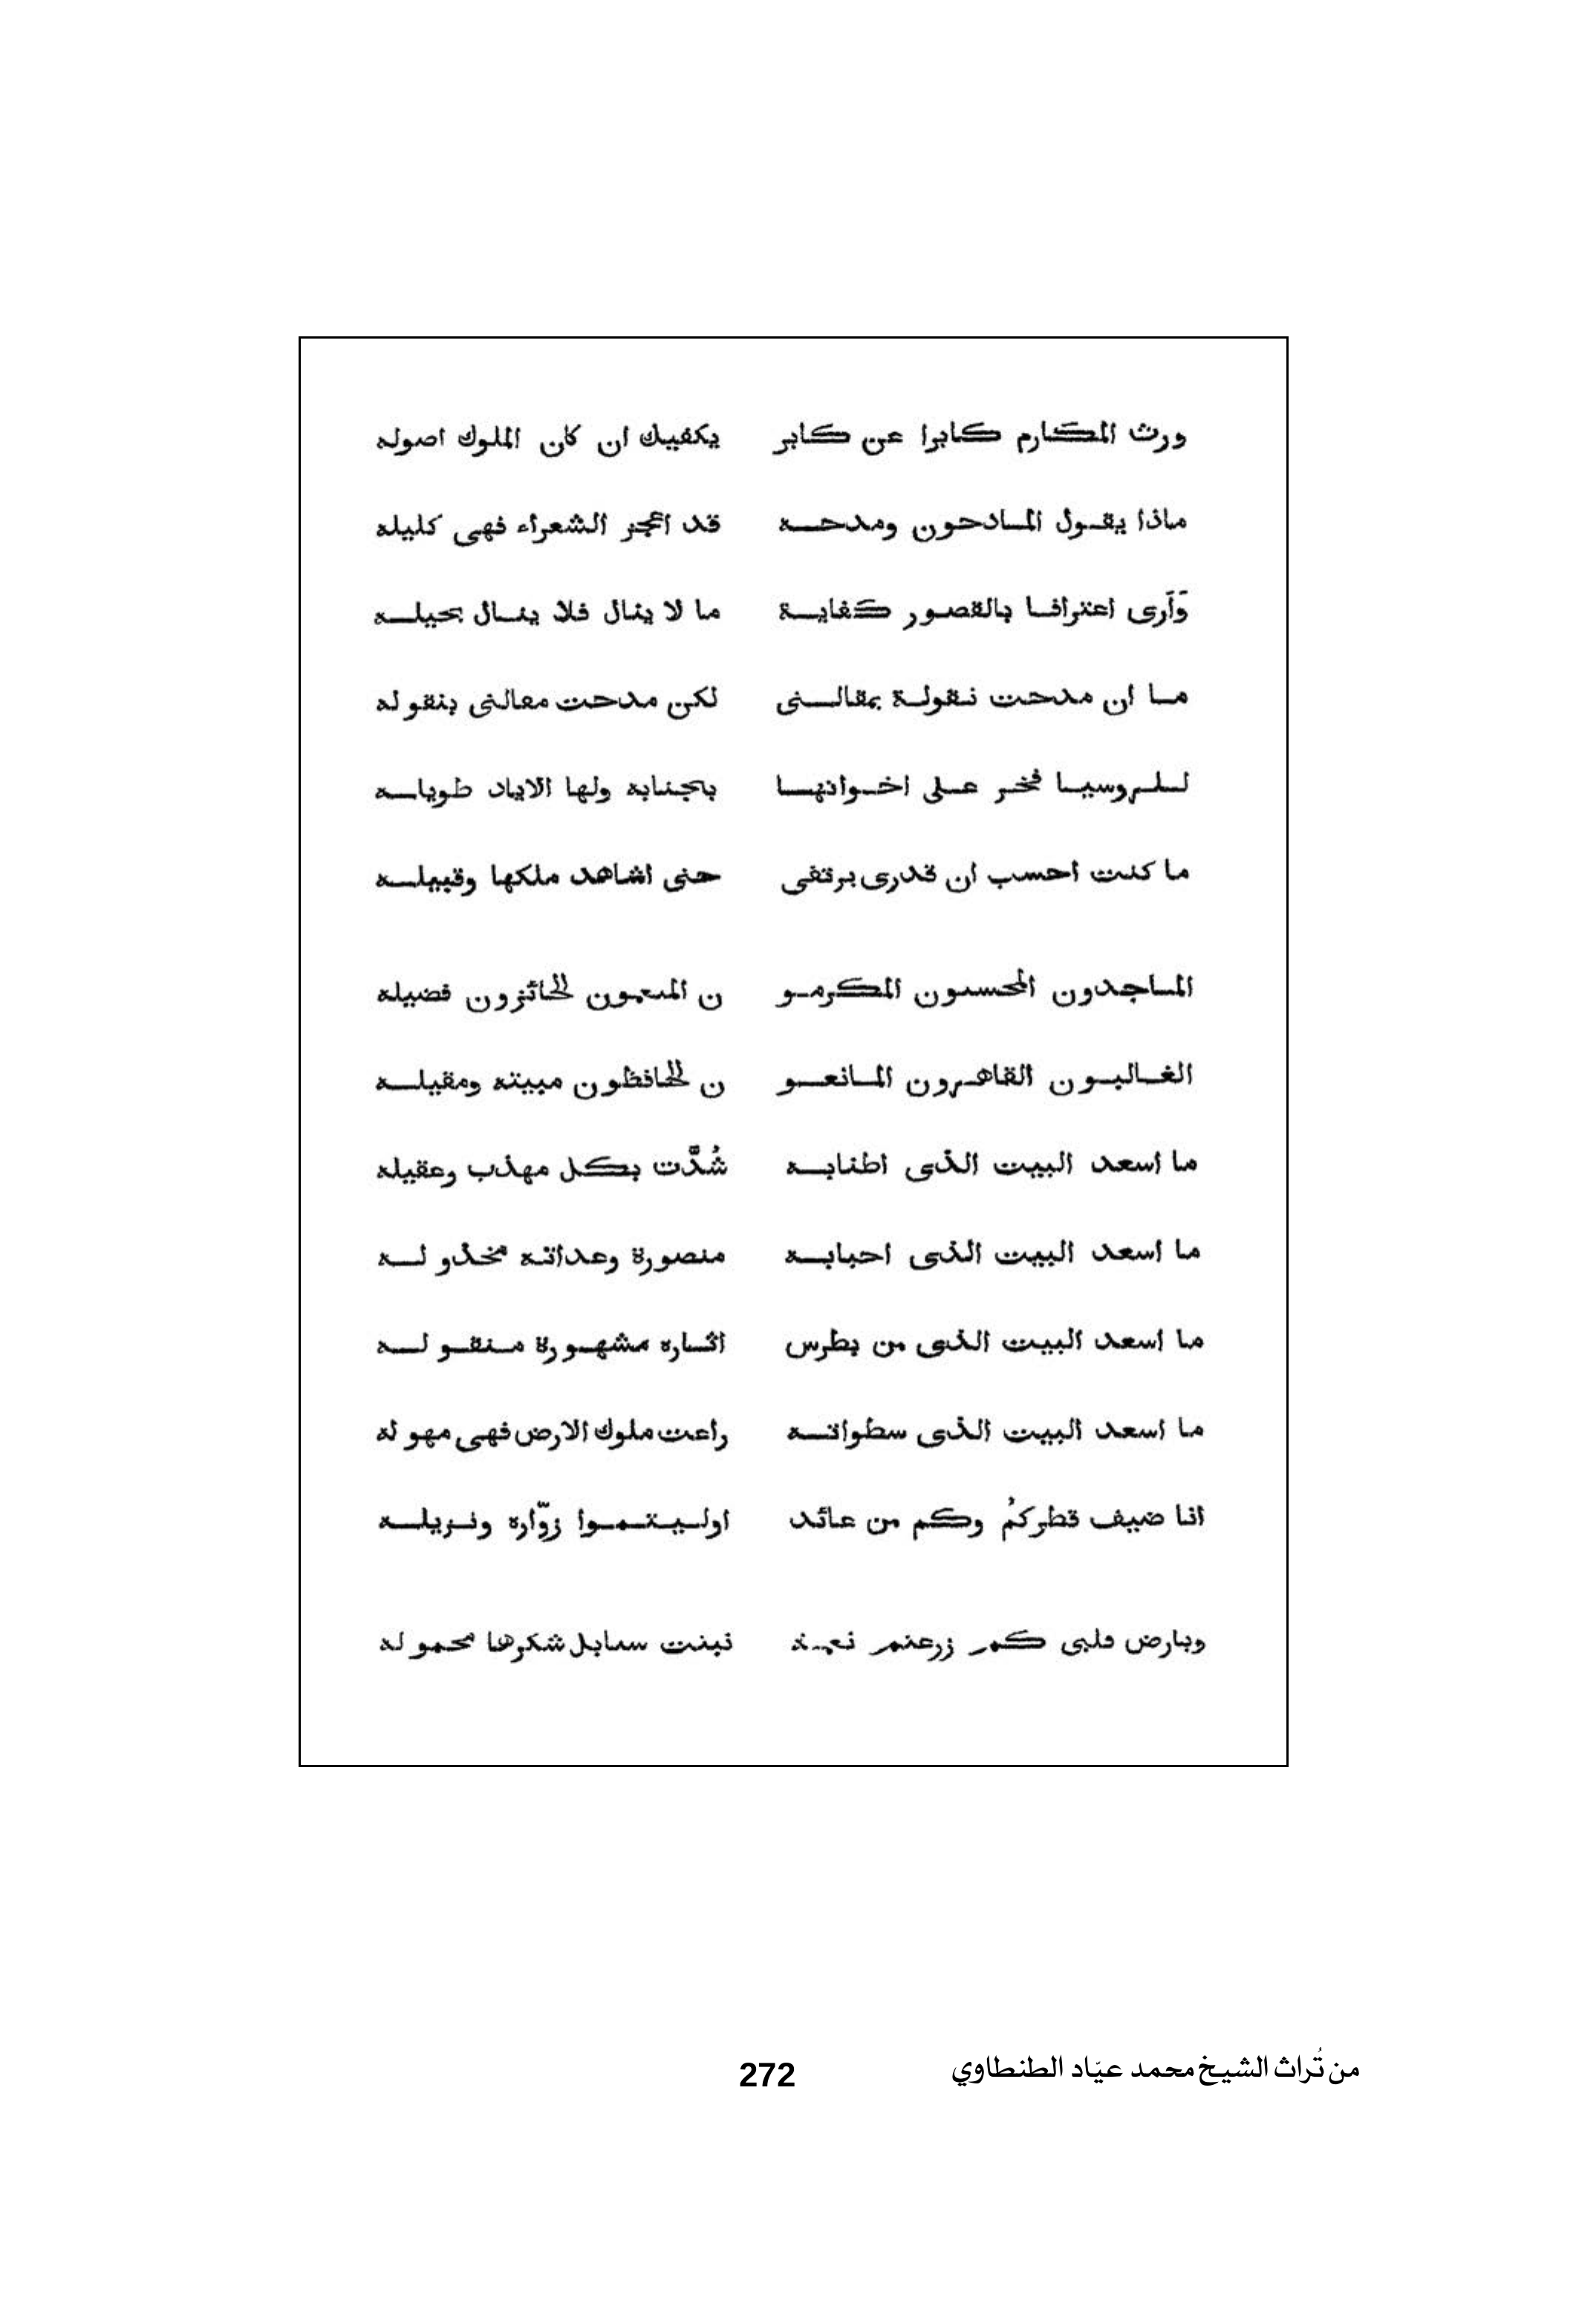 ورث المكارم كابرا عن كابر يكفيك ان كان الملوك اصوله
ماذا يقول المادحون ومدحه قد اعجز الشعراء فهى كليله
وَأَرى اعترافا بالقصور كفاية ما لا ينال فلا ينال بحيله
ما ان مدحت نقولة بمقالتى لكن مدحت مقالتى بنقوله
للروسيا فخر على اخوانها بجنابه ولها الاياد طويله
ما كنت احسب ان قدرى يرتقى حتى اشاهد ملكها وقبيله
الماجدون المحسنون المكرمو ن المنعمون الحائزون فضيله
الغالبون القاهرون المانعو ن الحافظون مبيته ومقيله
ما اسعد البيت الذى اطنابه شُدَّت بكل مهذب وعقيله
ما اسعد البيت الذى احبابه منصورة وعداته مخذوله
ما اسعد البيت الذى من بطرس اثاره مشهورة منقوله
ما اسعد البيت الذى سطواته راعت ملوك الارض فهى مهوله
انا ضيف قطركمُ وكم من عائد اوليتموا زوّاره ونزيله
وبارض قلبى كم زرعتم نعمة نبتت سنابل شكرها محموله
من تُراث الشيخ محمد عيّاد الطنطاوي 272